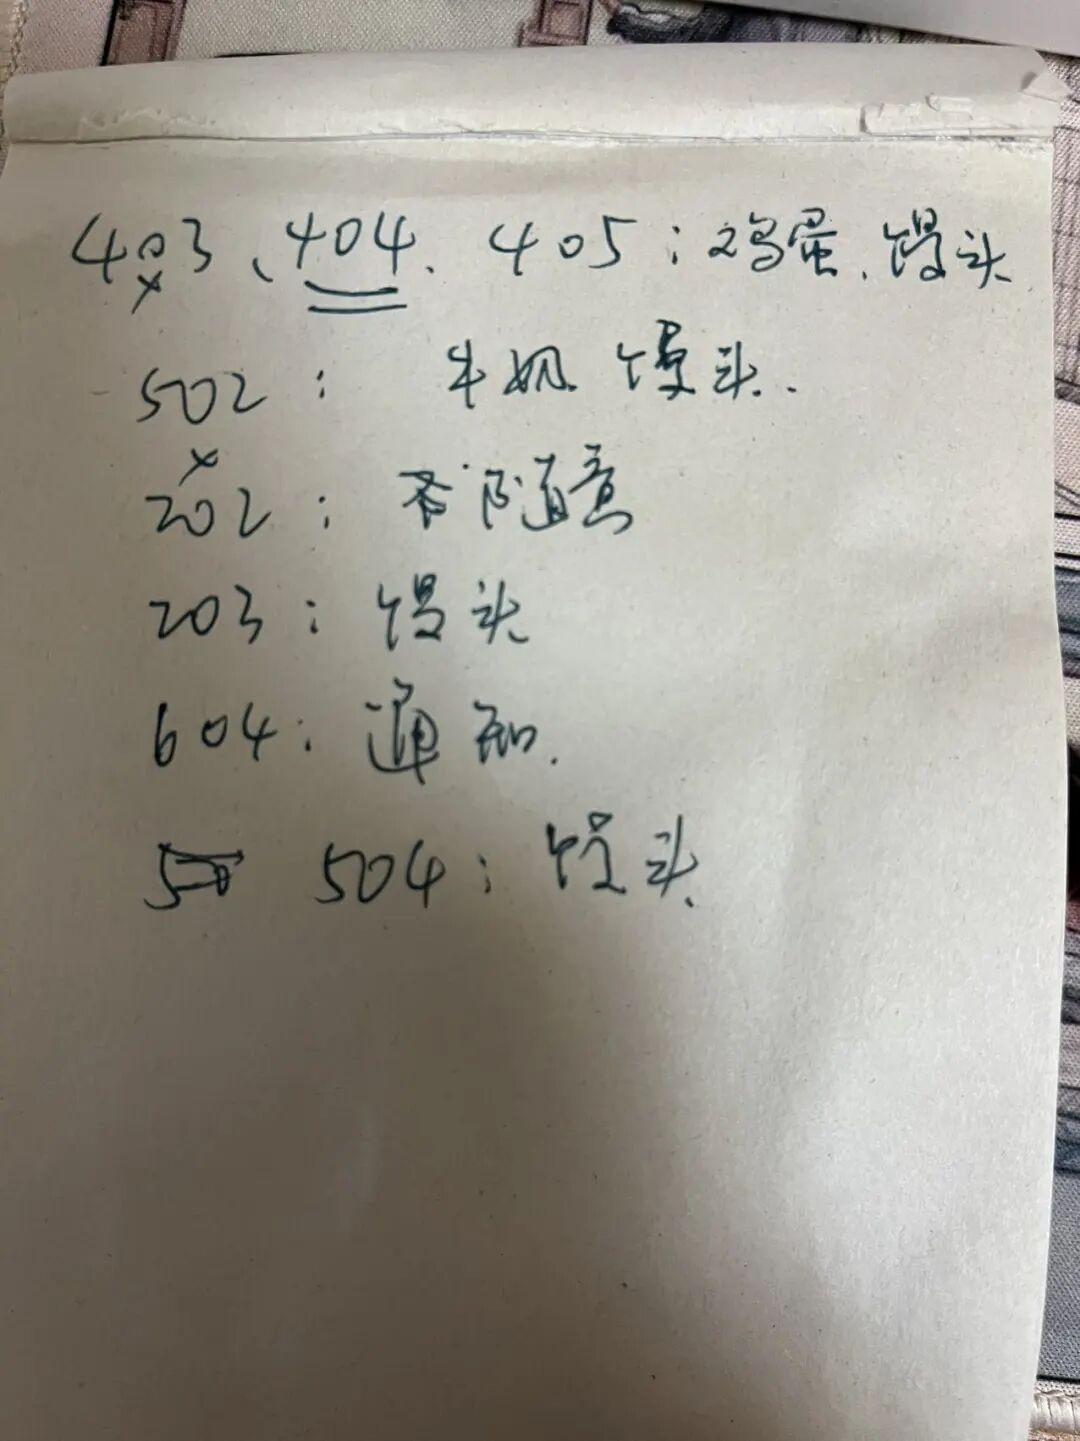 403、404、405：鸡蛋、馒头
502： 牛奶 馒头.
202： 随意
203：馒头
604：通知.
504：馒头